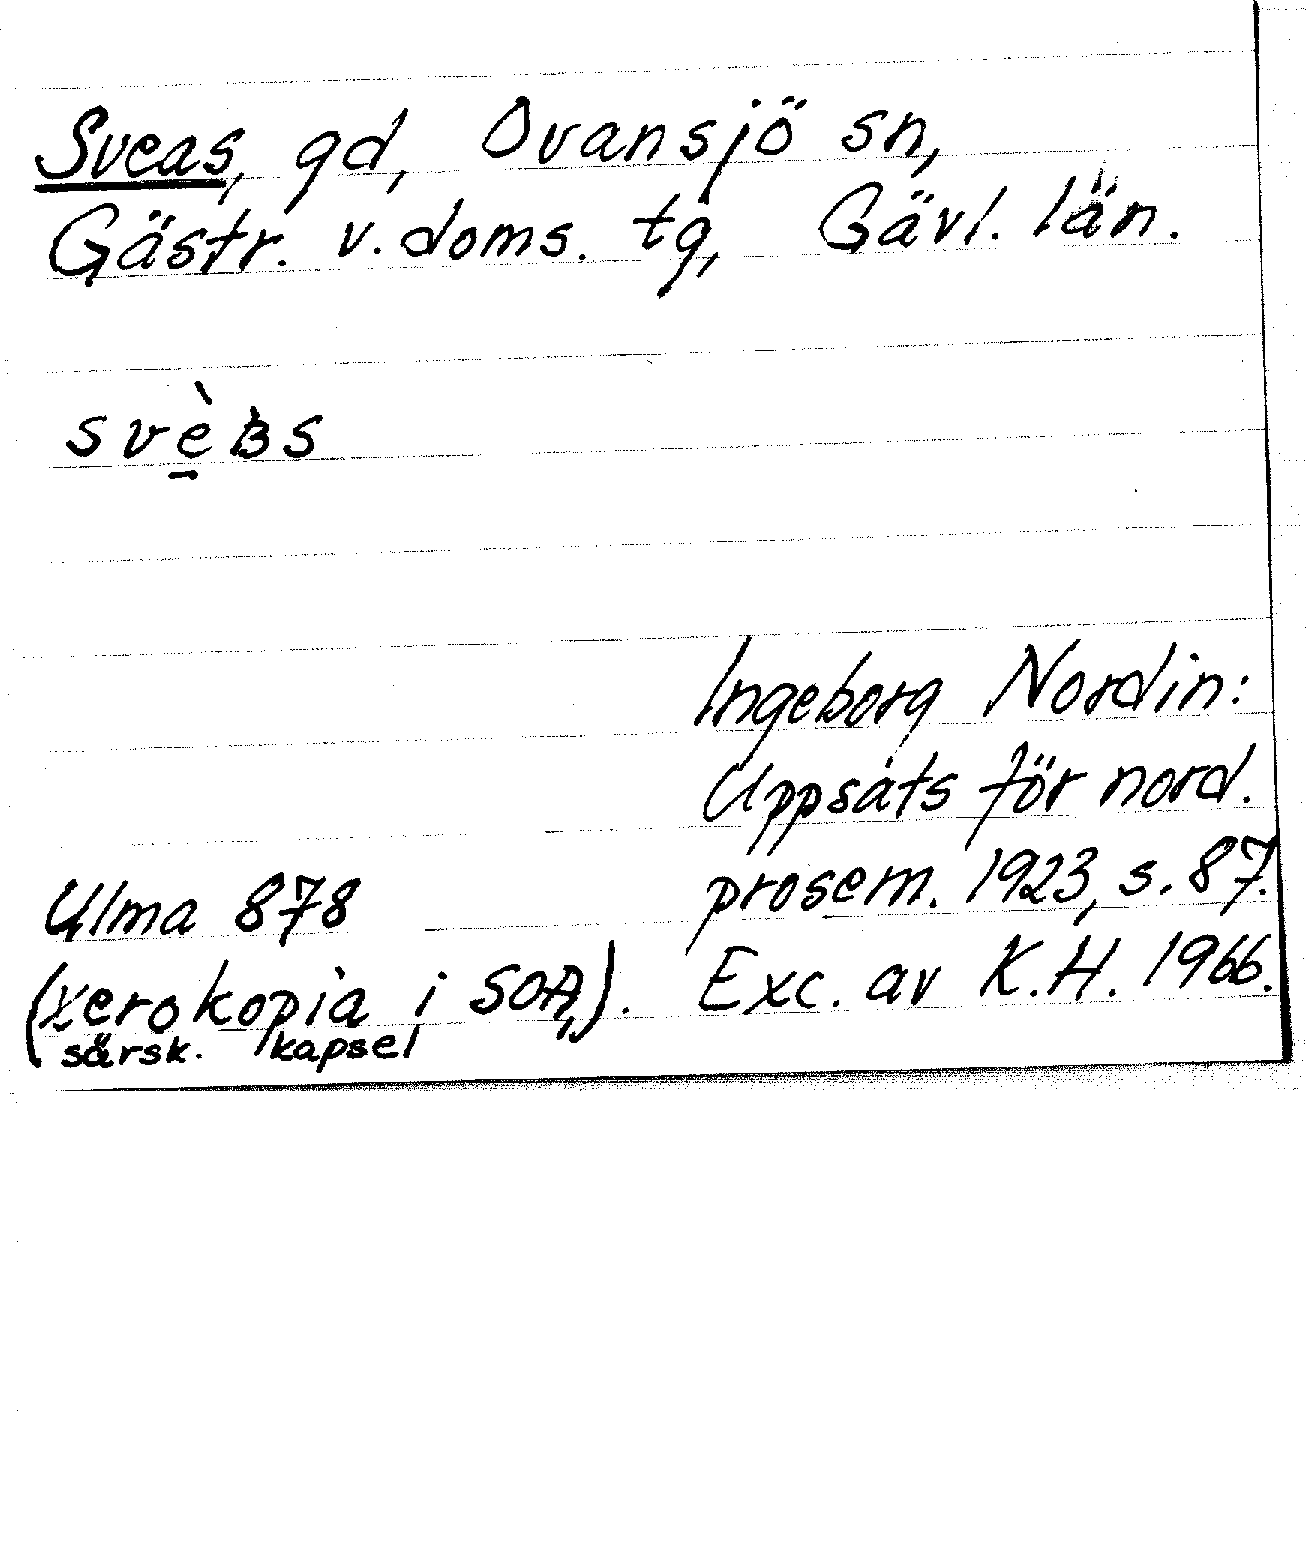 Sveas, gd, Ovansjö sn,
Gästr. v. doms. tg, Gävl. län.
svè̠ʙ̀s
Ingeborg Nordin:
Uppsats för nord.
prosem. 1923, s. 87.
Ulma 878
(xerokopia i SOA,). Exc. av K.H. 1966.
särsk. kapsel